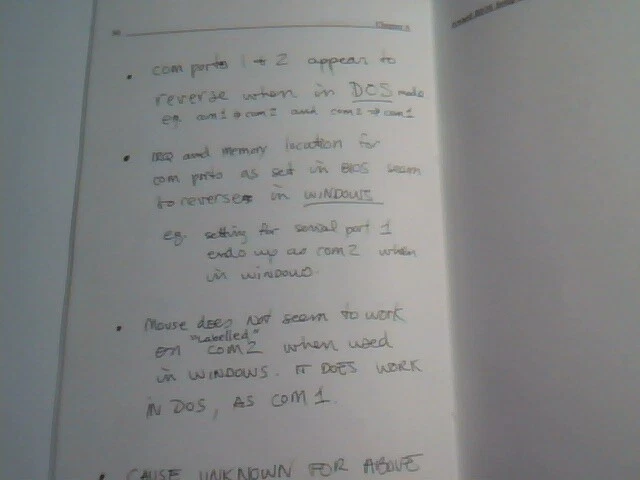 • com ports 1 + 2 appear to
reverse when in DOS mode
eg. com1 → com2 and com2 → com1
• IRQ and memory location for
com ports as set in BIOS seem
to reverse in WINDOWS
eg. setting for serial port 1
ends up as com2 when
in WINDOWS.
• Mouse does NOT seem to work
on "Labelled" COM2 when used
in WINDOWS. IT DOES WORK
IN DOS, AS COM1.
• CAUSE UNKNOWN FOR ABOVE